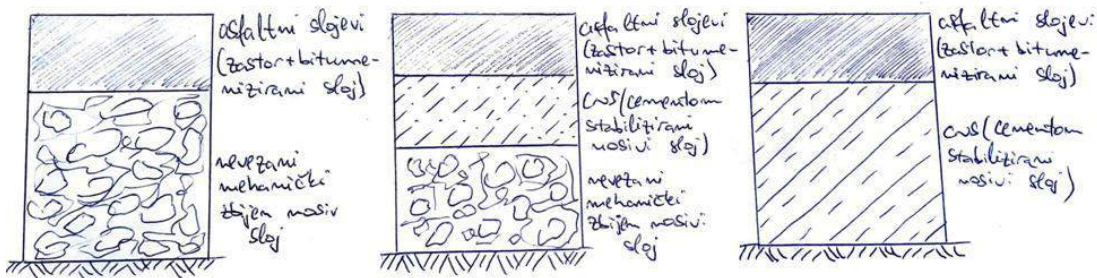 asfaltni slojevi
(zastor+bitume-
nizirani sloj)
nevezani
mehanički
zbijen nosiv
sloj
asfaltni slojevi
(zastor+bitume-
nizirani sloj)
CNS (cementom
stabilizirani
nosivi sloj)
nevezani
mehanički
zbijem nosivi
sloj
asfaltni slojevi
(zastor+bitume-
nizirani sloj)
CNS (cementom
stabilizirani
nosivi sloj)